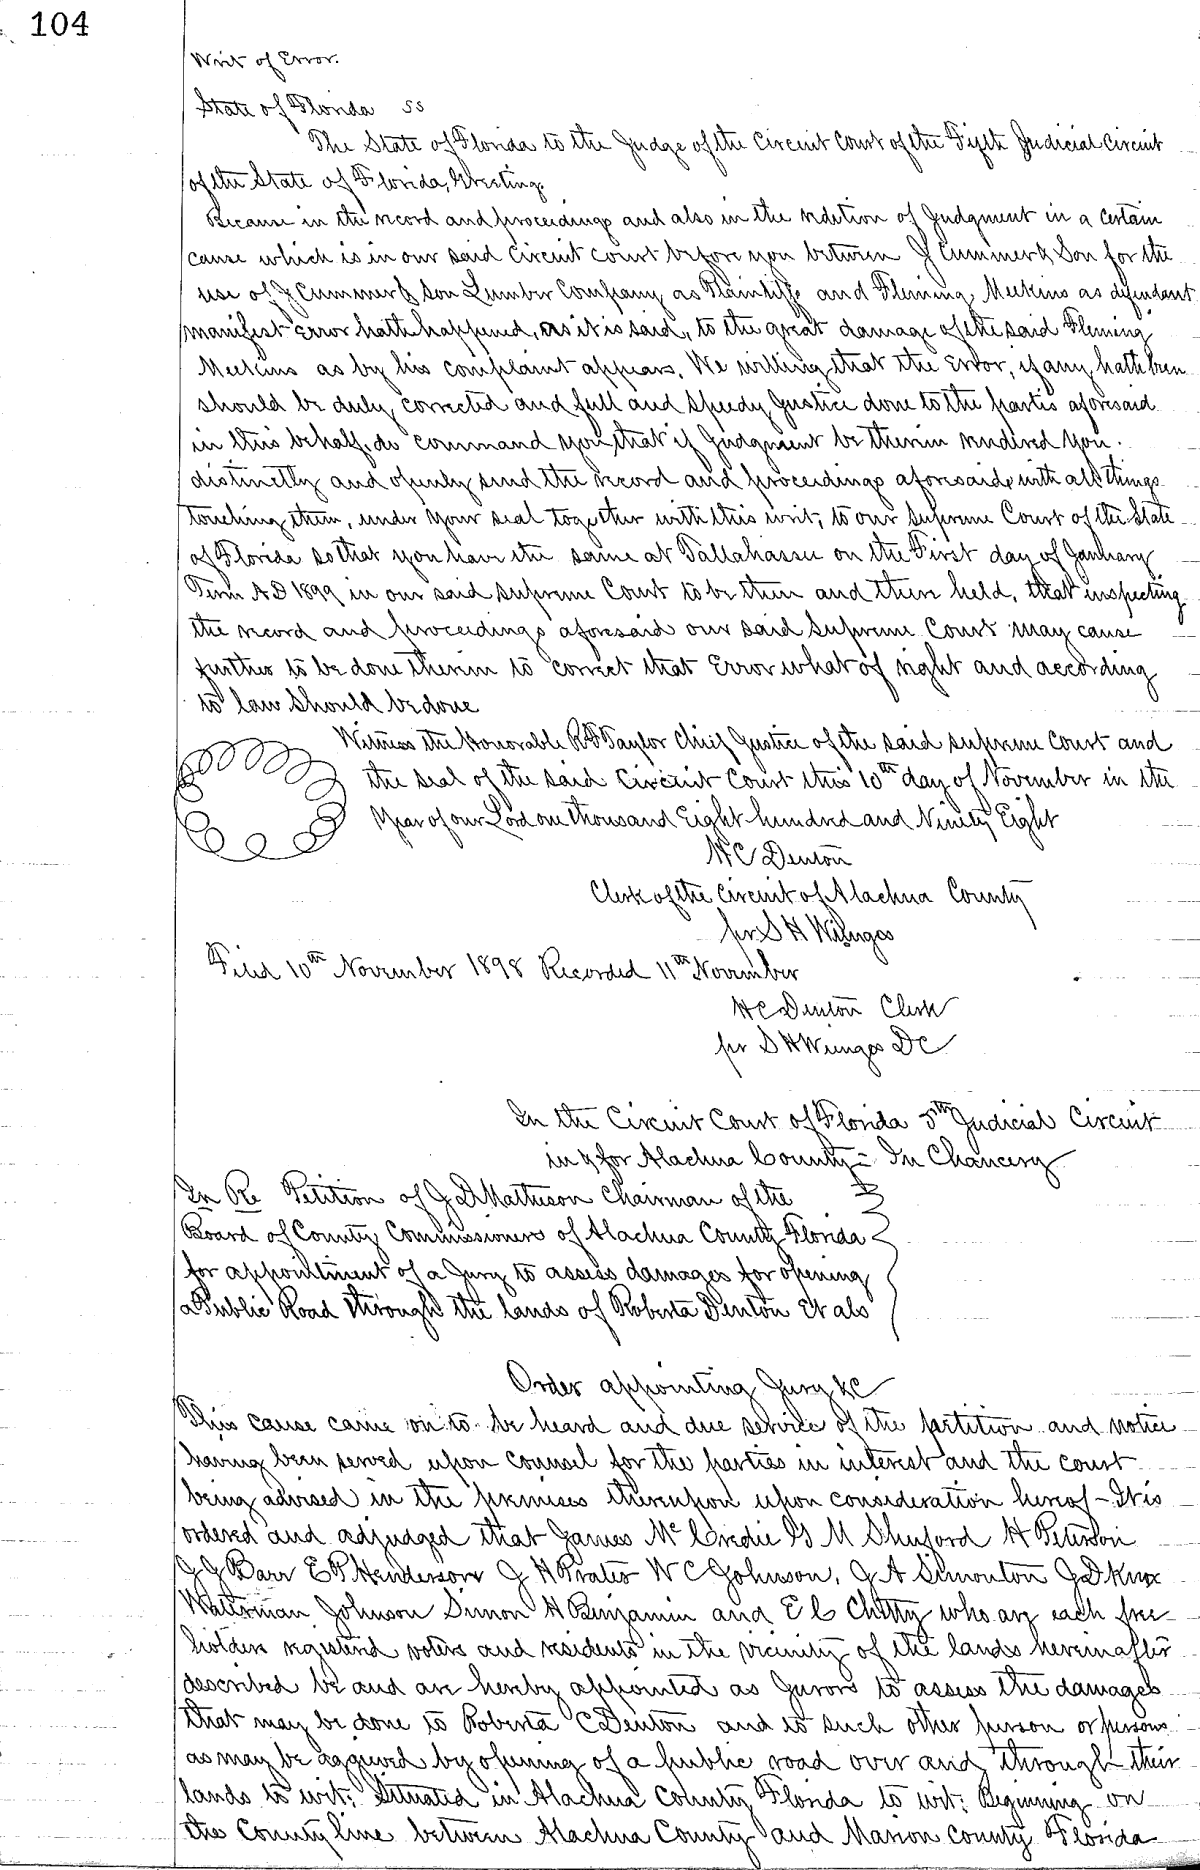 104
Writ of Error.
State of Florida ss
The State of Florida to the Judge of the Circuit Court of the Fifth Judicial Circuit
of the State of Florida, Greeting.
Because in the record and proceedings and also in the redition of Judgment in a certain
cause which is in our said Circuit Court before you between J Cummer & Son for the
use of J Cummer & Son Lumber Company as Plaintiffs and Fleming Meekins as defendant
manifest Error hath happened, as it is said, to the great damage of the said Fleming
Meekins as by his complaint appears, We willing that the Error, if any, hath been
should be duly corrected and full and speedy Justice done to the parties aforesaid
in this behalf, do command you that if Judgment be therein rendered you
distinctly and openly send the record and proceedings aforesaid with all things
touching them, under your seal together with this writ, to our Supreme Court of the State
of Florida so that you have the same at Tallahassee on the First day of January
Term A D 1899 in our said Supreme Court to be then and there held, that inspecting
the record and proceedings aforesaid our said Supreme Court may cause
further to be done therein to correct that Error what of right and according
to law should be done
Witness the Honorable R F Taylor Chief Justice of the said Supreme Court and
the seal of the said Circuit Court this 10th day of November in the
Year of our Lord one thousand Eight hundred and Ninety Eight
H C Denton
Clerk of the Circuit of Alachua County
per S H Wienges
Filed 10th November 1898 Recorded 11th November
H C Denton Clerk
per S H Wienges D C
In the Circuit Court of Florida 5th Judicial Circuit
in & for Alachua County - In Chancery
In Re Petition of J D Matheson Chairman of the
Board of County Commissioners of Alachua County Florida
for appointment of a Jury to assess damages for opening
a Public Road through the lands of Roberta Denton Et als
Order appointing Jury &c
This cause came on to be heard and due service of the petition and notice
having been served upon counsel for the parties in interest and the court
being advised in the premises thereupon upon consideration hereof - It is
ordered and adjudged that James McCredie G M Shuford H Peterson
J J Barr E P Henderson J H Prater W C Johnson, J A Simonton J D Knox
Waterman Johnson Simon H Benjamin and E C Chitty who are each free
holders registered voters and residents in the vicinity of the lands hereinafter
described be and are hereby appointed as Jurors to assess the damages
that may be done to Roberta C Denton and to such other person or persons
as may be aggieved by opening of a public road over and through their
lands to wit: Situated in Alachua County Florida to wit: Beginning on
the County line between Alachua County and Marion County Florida